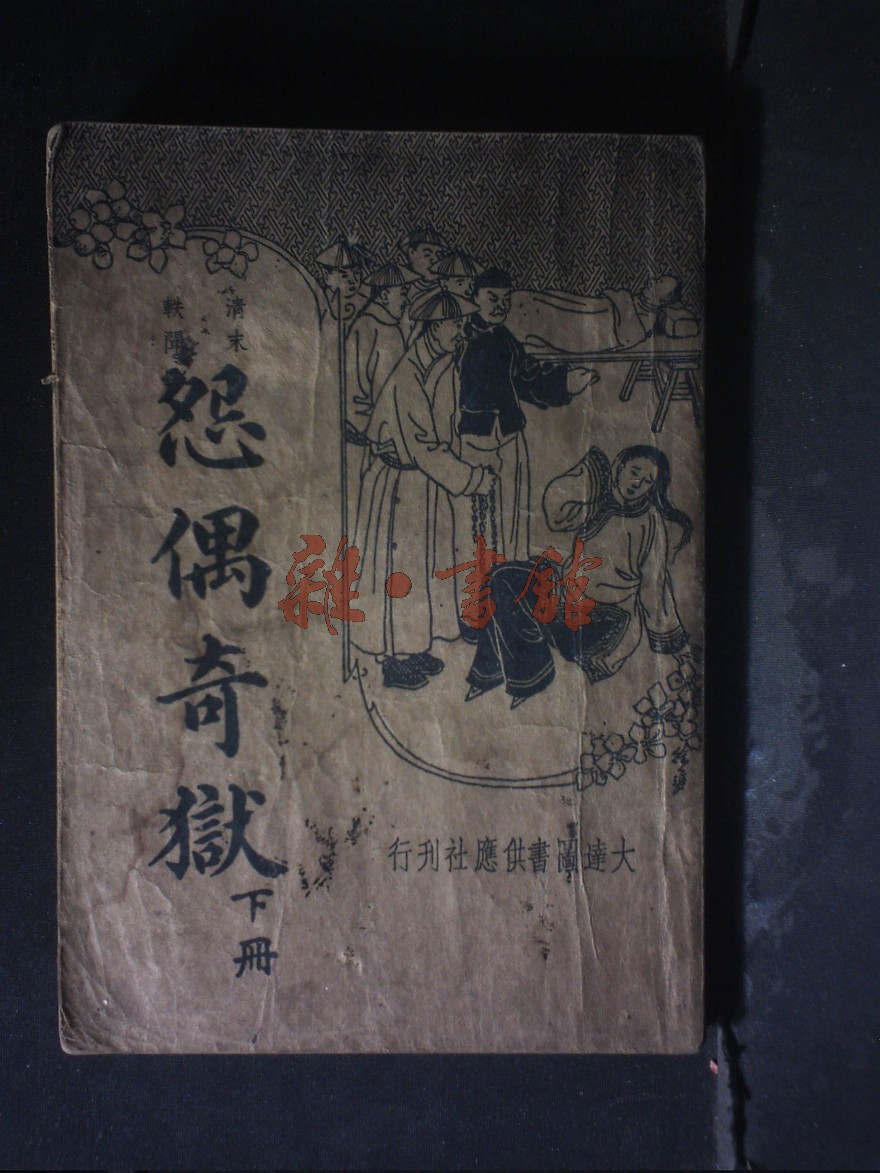 清末
軼聞
怨偶奇獄
下冊
大達圖書供應社刊行
雜·書館